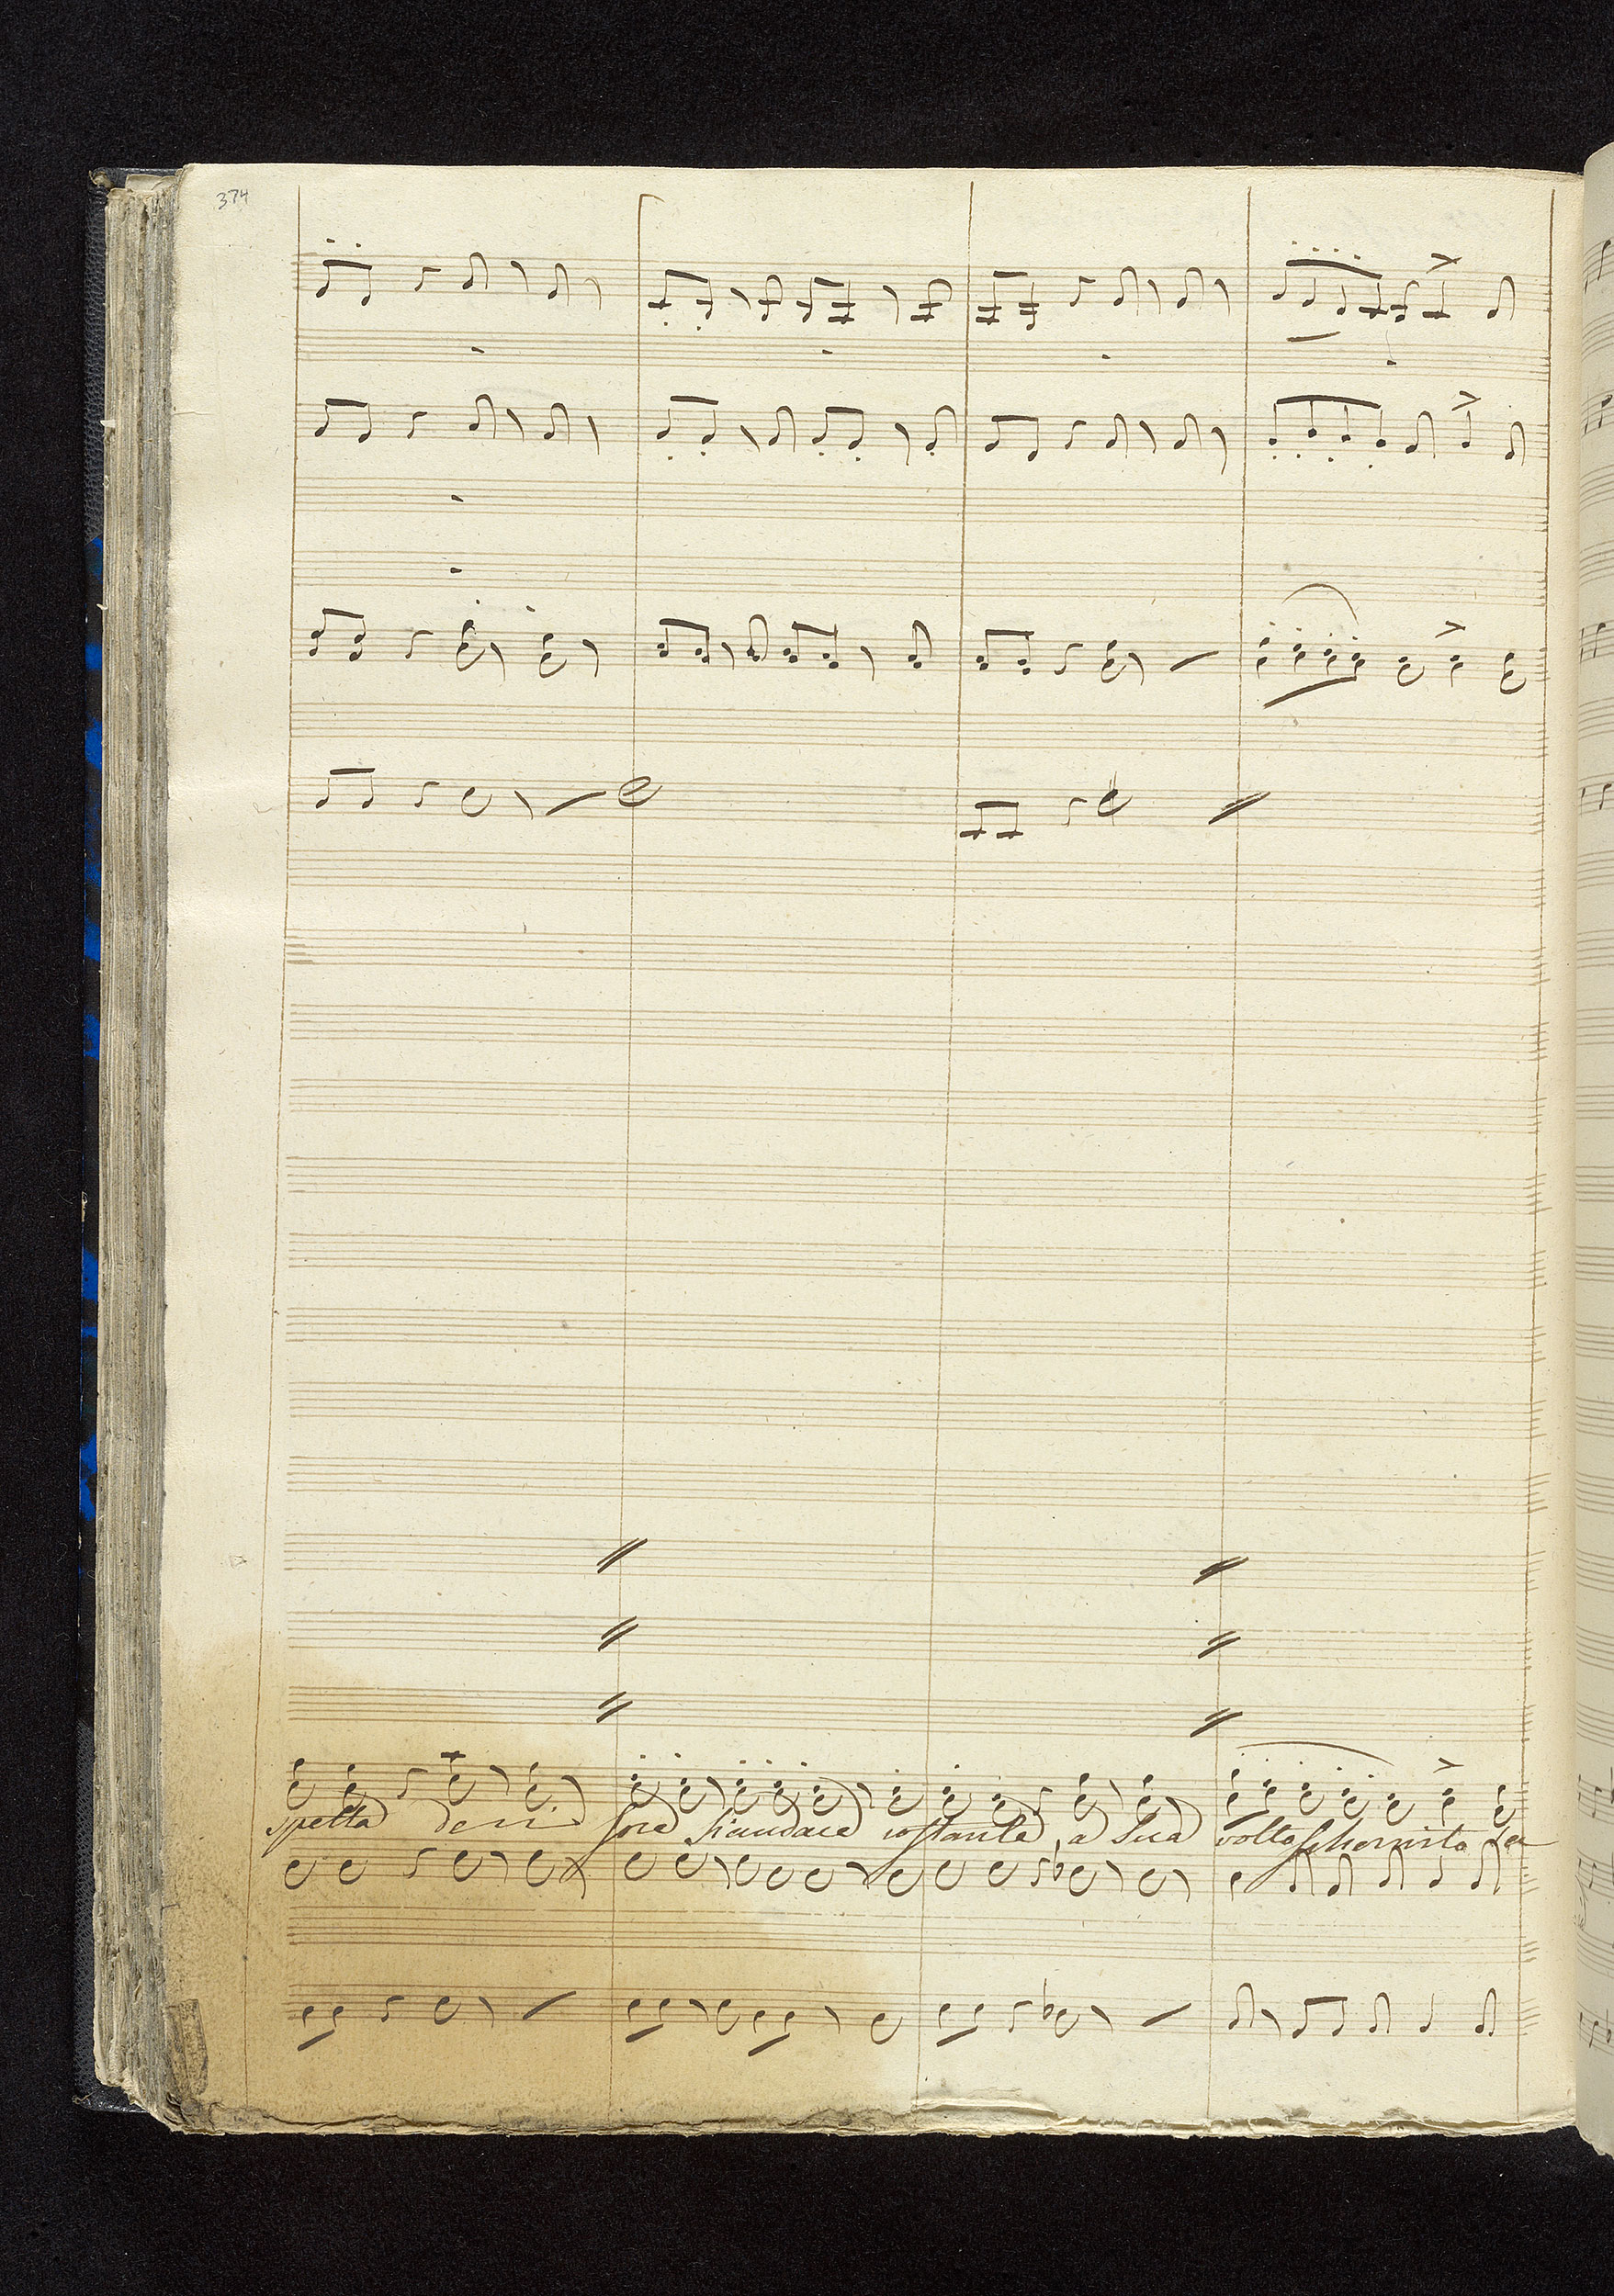 374
spetta derisi fore s'audace costante, a sua volta schernito sa